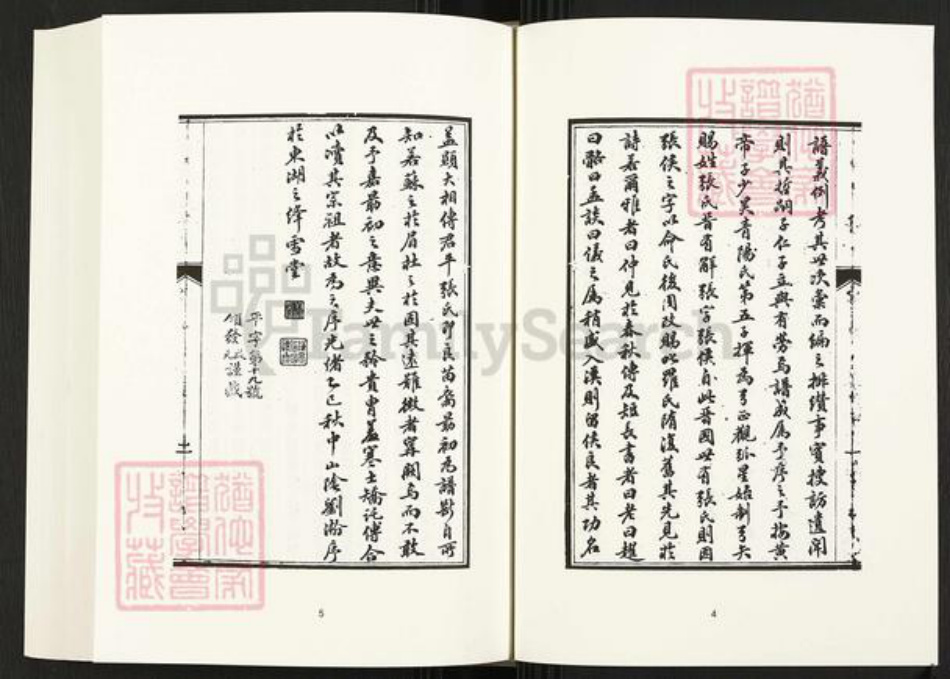 譜義例考其世次彙而編之排纘事實搜訪遺聞
則其哲嗣子仁子立與有勞焉譜成屬予序之予按黃
帝子少昊青陽氏第五子揮為弓正觀弧星始制弓矢
賜姓張氏晉有解張字張侯自此晉國世有張氏則因
張侯之字以命氏後周改賜叱羅氏隋復舊其先見於
詩若爾雅者曰仲見於春秋傳及短長書者曰老曰趯
曰骼曰孟談曰儀之屬稍盛入漢則留侯良者其功名
蓋顯大相傳君平張氏即良苗裔最初為譜斷自所
知若蘇之於眉杜之於固其遠難徵者寧闕焉而不敢
及予嘉最初之意異夫世之矜貴冑羞寒士矯託傅合
以瀆其宗祖者故為之序光緒乙巳秋中山陰劉瀚序
於東湖之絳雪堂
平字第十九號
領發 謹藏
猶他家
譜學會
收藏
猶他家
譜學會
收藏
FamilySearch
5
4